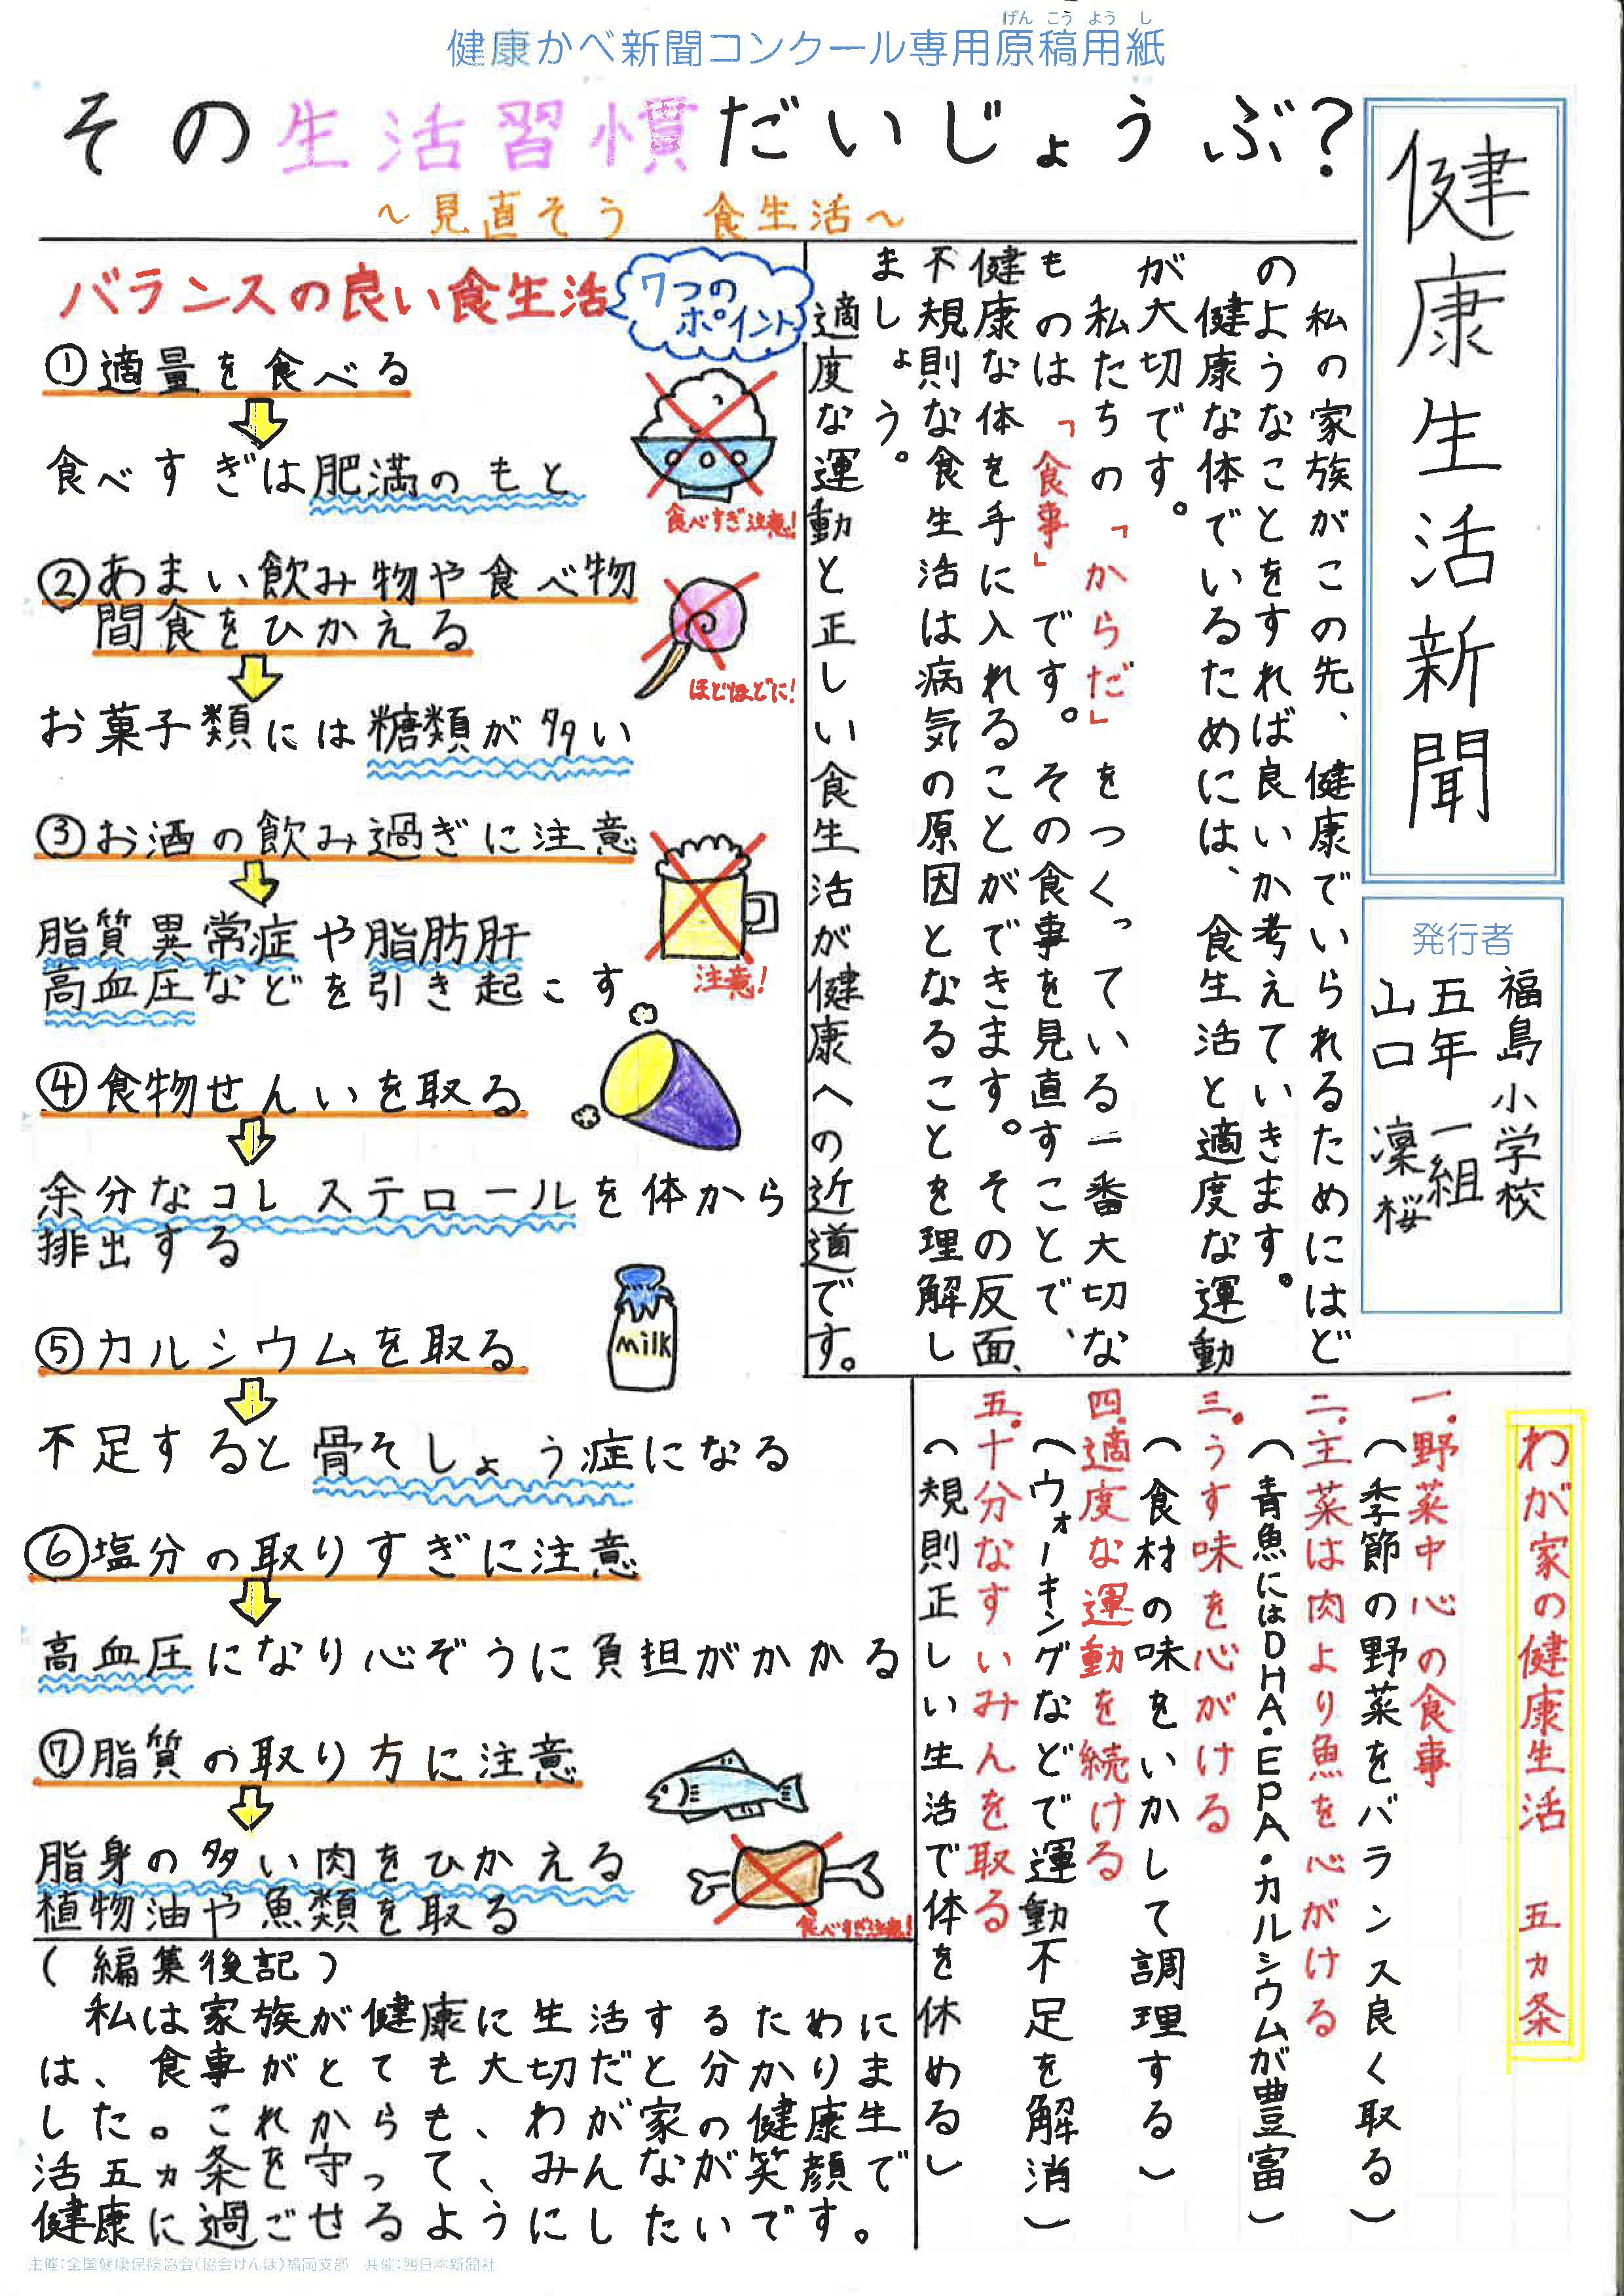 健康かべ新聞コンクール専用原稿用紙
げんこうようし
その生活習慣だいじょうぶ?
~見直そう 食生活~
健康生活新聞
発行者
福島小学校
五年一組
山口 凜桜
私の家族がこの先、健康でいられるためにはど
のようなことをすれば良いか考えていきます。
健康な体でいるためには、食生活と適度な運動
が大切です。
私たちの「からだ」をつくっている一番大切な
ものは「食事」です。その食事を見直すことで、
健康な体を手に入れることができます。その反面、
不規則な食生活は病気の原因となることを理解し
ましょう。
適度な運動と正しい食生活が健康への近道です。
バランスの良い食生活
7つの
ポイント
①適量を食べる
食べすぎは肥満のもと
食べすぎ注意!
②あまい飲み物や食べ物
間食をひかえる
お菓子類には糖類が多い
ほどほどに!
③お酒の飲み過ぎに注意
脂質異常症や脂肪肝
高血圧などを引き起こす
注意!
④食物せんいを取る
余分なコレステロールを体から
排出する
⑤カルシウムを取る
milk
不足すると骨そしょう症になる
⑥塩分の取りすぎに注意
高血圧になり心ぞうに負担がかかる
⑦脂質の取り方に注意
脂身の多い肉をひかえる
植物油や魚類を取る
食べすぎ注意!
わが家の健康生活 五ヵ条
一.野菜中心の食事
(季節の野菜をバランス良く取る)
二.主菜は肉より魚を心がける
(青魚にはDHA・EPA・カルシウムが豊富)
三.うす味を心がける
(食材の味をいかして調理する)
四.適度な運動を続ける
(ウォーキングなどで運動不足を解消)
五.十分なすいみんを取る
(規則正しい生活で体を休める)
(編集後記)
私は家族が健康に生活するために
は、食事がとても大切だと分かりま
した。これからも、わが家の健康生
活五ヵ条を守って、みんなが笑顔で
健康に過ごせるようにしたいです。
主催:全国健康保険協会(協会けんぽ)福岡支部 共催:西日本新聞社